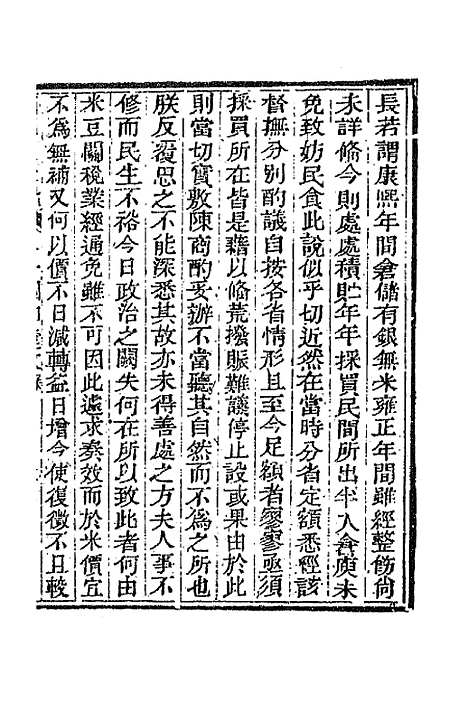 長若謂康熙年間倉儲有銀無米雍正年間雖經整飭尙
未詳備今則處處積貯年年採買民間所出半入倉庾未
免致妨民食此說似乎切近然在當時分省定額悉經該
督撫分別酌議自按各省情形且至今足額者寥寥亟須
採買所在皆是藉以備荒撥賑難議停止設或果由於此
則當切實敷陳商酌妥辦不當聽其自然而不爲之所也
朕反覆思之不能深悉其故亦未得善處之方夫人事不
修而民生不裕今日政治之闕失何在所以致此者何由
米豆關稅業經通免雖不可因此遽求奏效而於米價宜
不爲無補又何以價不日減轉益日增今使復徵不且較